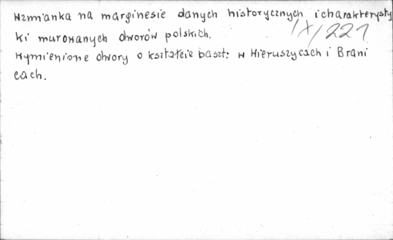 Wzmianka na marginesie danych historycznych i charakterysty
ki murowanych dworów polskich.
IX/221
Wymienione dwory o kształcie baszt: w Wieruszycach i Brani
cach.